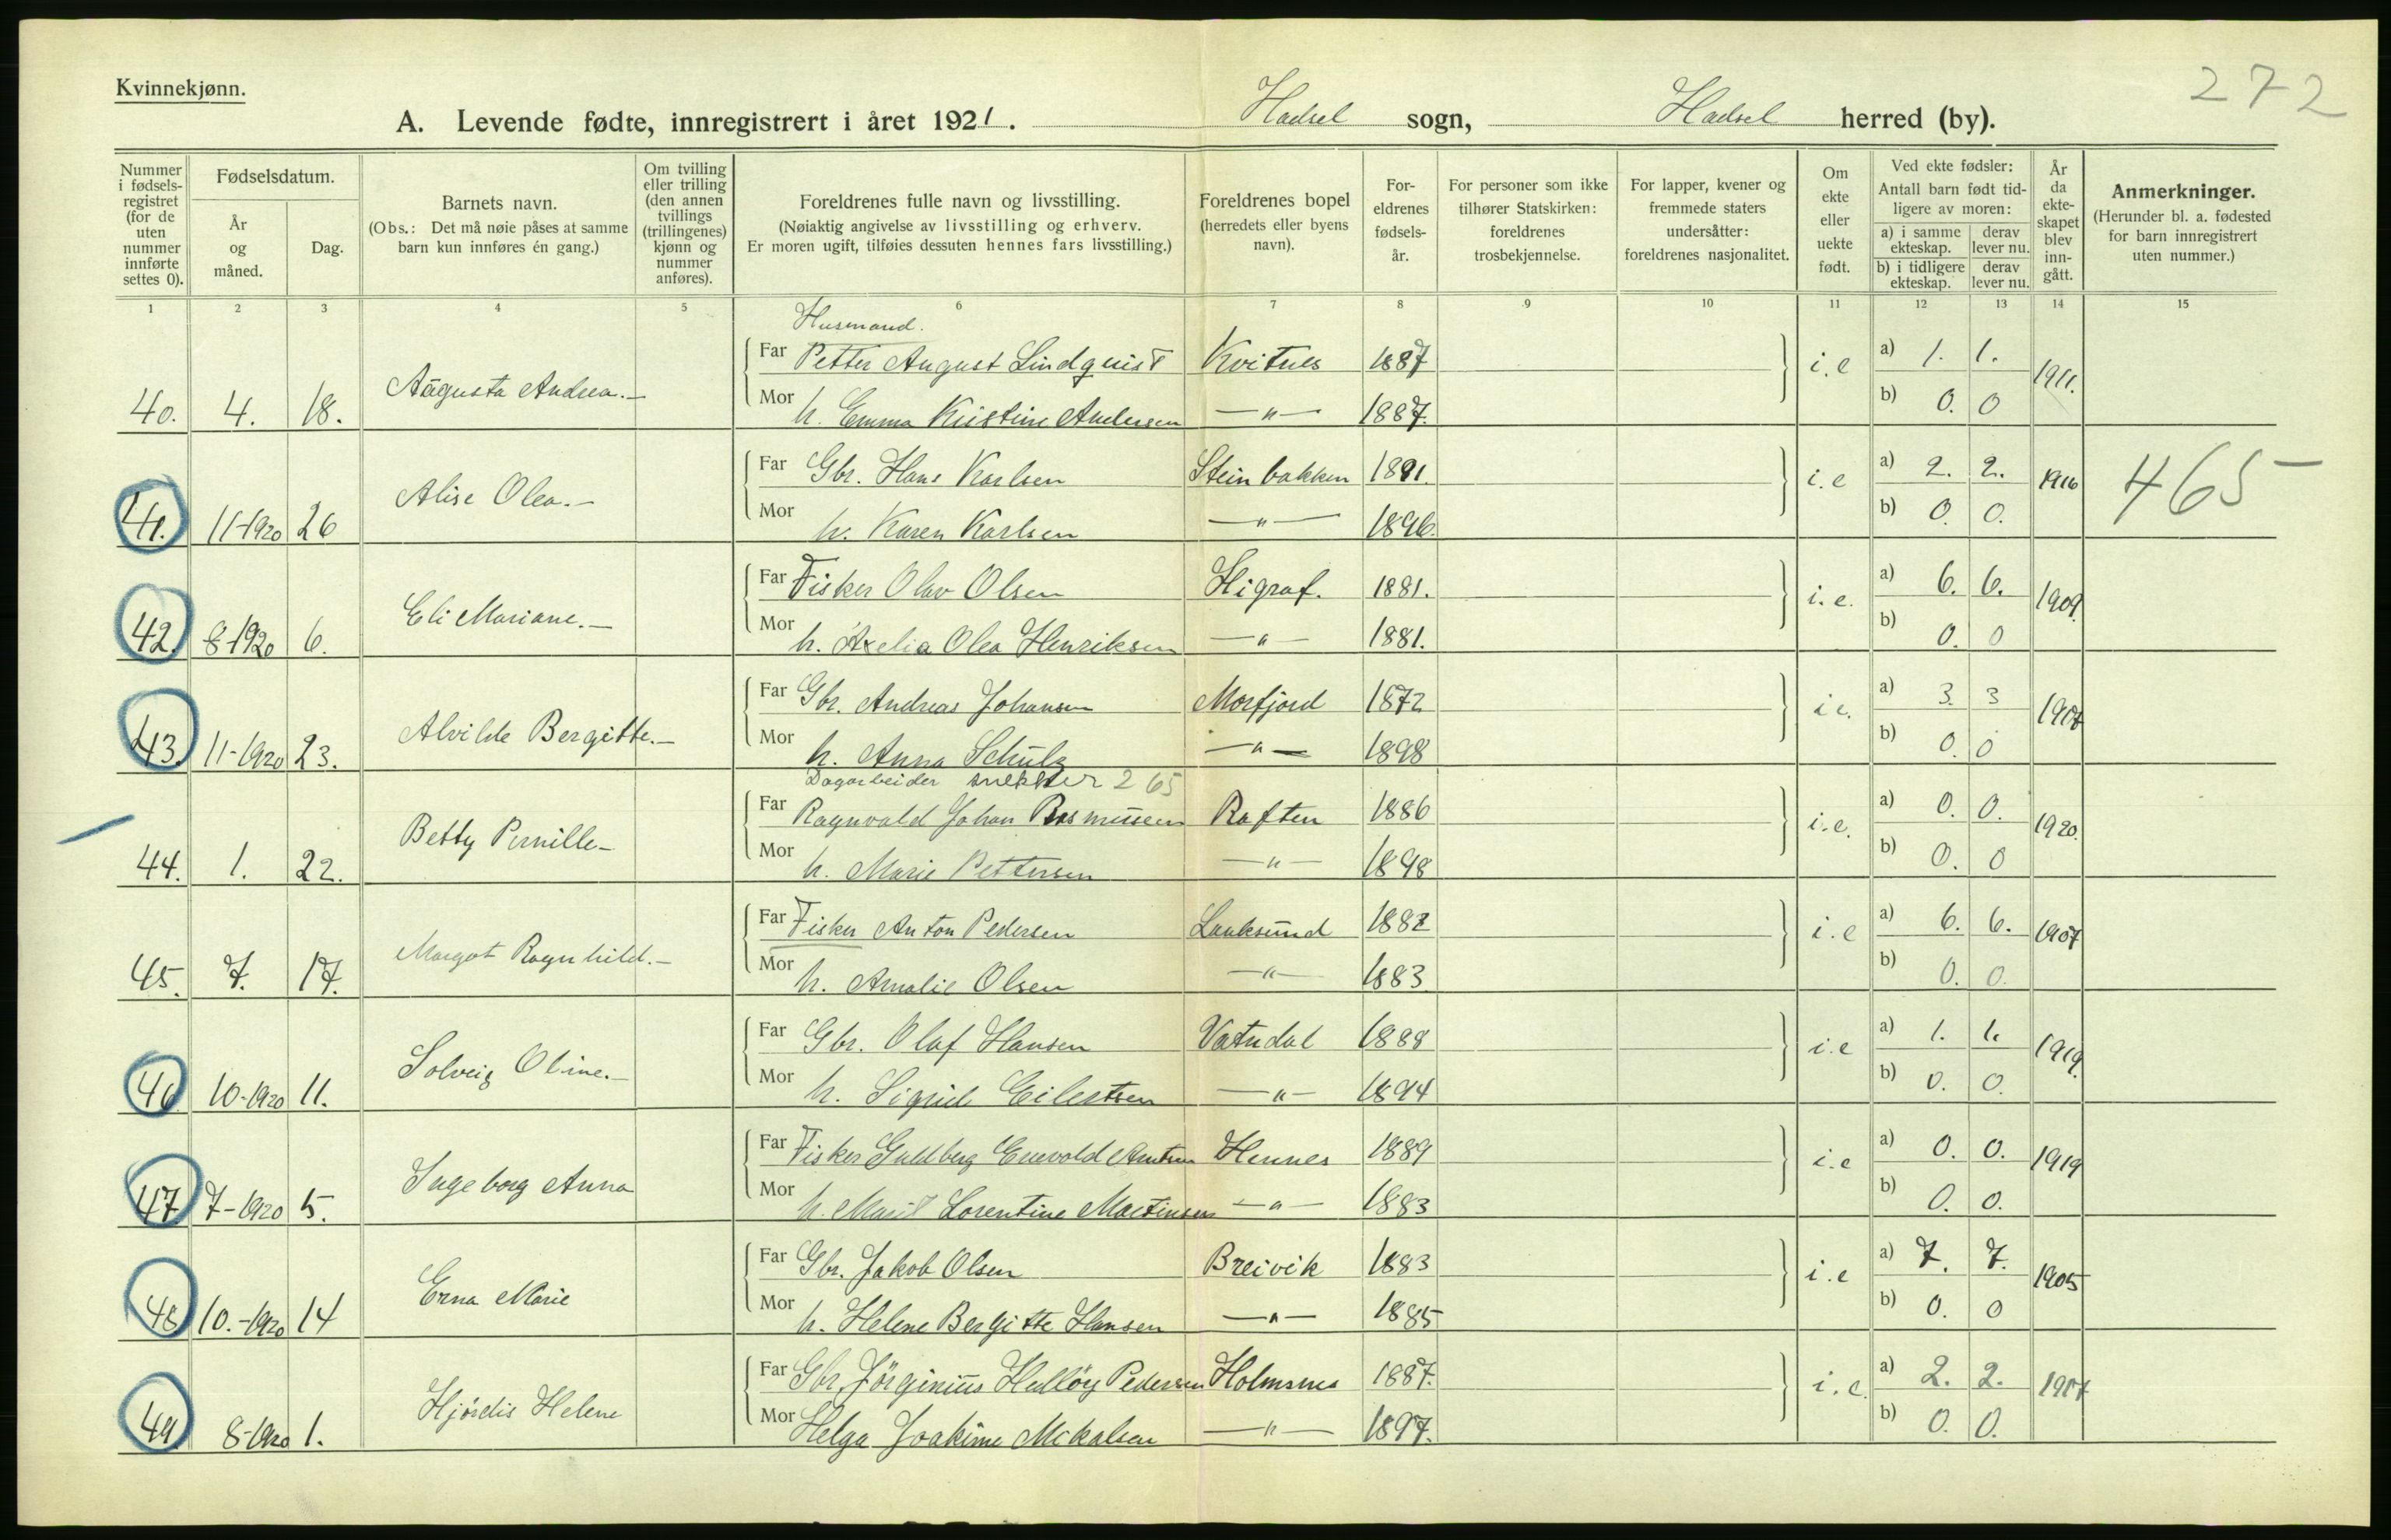 272
Kvinnekjønn.
A. Levende fødte, innregistrert i året 1921. Hadsel sogn, Hadsel herred (by).
Nummer i fødsels-registret (for de uten nummer innførte settes 0).
Fødselsdatum.
År og måned.
Dag.
Barnets navn.
(Obs.: Det må nøie påses at samme barn kun innføres én gang.)
Om tvilling eller trilling (den annen tvillings (trillingenes) kjønn og nummer anføres).
Foreldrenes fulle navn og livsstilling.
(Nøiaktig angivelse av livsstilling og erhverv. Er moren ugift, tilføies dessuten hennes fars livsstilling.)
Foreldrenes bopel (herredets eller byens navn).
For-eldrenes fødsels-år.
For personer som ikke tilhører Statskirken: foreldrenes trosbekjennelse.
For lapper, kvener og fremmede staters undersåtter: foreldrenes nasjonalitet.
Om ekte eller uekte født.
Ved ekte fødsler:
Antall barn født tid-ligere av moren:
a) i samme ekteskap. derav lever nu.
b) i tidligere ekteskap. derav lever nu.
År da ekte-skapet blev inn-gått.
Anmerkninger.
(Herunder bl. a. fødested for barn innregistrert uten nummer.)
1 2 3 4 5 6 7 8 9 10 11 12 13 14 15
Husmand.
Far Petter August Lindquist Kvitnes 1887 i.e a) 1. 1. 1911.
40. 4. 18. Augusta Andrea.-
Mor h. Emma Kristine Andersen -"- 1887. b) 0. 0
Far Gbr. Hans Karlsen Steinbakken 1891. i.e a) 2. 2. 1916 465-
41. 11-1920 26 Alise Olea.-
Mor h. Karen Karlsen -"- 1896. b) 0. 0.
Far Fisker Olav Olsen Higraf. 1881. i.e. a) 6. 6. 1909.
42. 8-1920 6. Eli Mariane.-
Mor h. Axelia Olea Henriksen -"- 1881. b) 0. 0
Far Gbr. Andreas Johansen Morfjord 1872 i.e. a) 3. 3
43. 11-1920 23. Alvilde Bergitte.-
Mor h. Anna Schulz -"- 1898 b) 0. 0
Dagarbeider snekker 265
Far Ragnvald Johan Rasmussen Raften 1886 i.e. a) 0. 0. 1920.
44. 1. 22. Betty Pernille-
Mor h. Marie Pettersen -"- 1898 b) 0. 0
Far Fisker Anton Pedersen Lauksund 1882 i.e a) 6. 6. 1907
45. 7. 17. Margot Ragnhild.-
Mor h. Amalie Olsen -"- 1883 b) 0. 0.
Far Gbr. Olaf Hansen Vatndal 1888 i.e a) 1. 1. 1919.
46 10-1920 11. Solveig Oline.-
Mor h. Sigrid Eilertsen -"- 1894 b) 0. 0.
Far Fisker Guldberg Enevold Hennes 1889 i.e a) 0. 0. 1919
47 7-1920 5. Ingeborg Anna
Mor h. Marit Lorentine Martinsen -"- 1883 b) 0. 0.
Far Gbr. Jakob Olsen Breivik 1883 i.e a) 7. 7. 1905
48 10.-1920 14 Erna Marie
Mor h. Helene Bergitte Hansen -"- 1885 b) 0. 0
Far Gbr. Jörginius Pedersen Holmsnes 1887. i.e. a) 2. 2.
49. 8-1920 1. Hjördis Helene
Mor Helga Joakime Mikalsen -"- 1897. b) 0. 0.